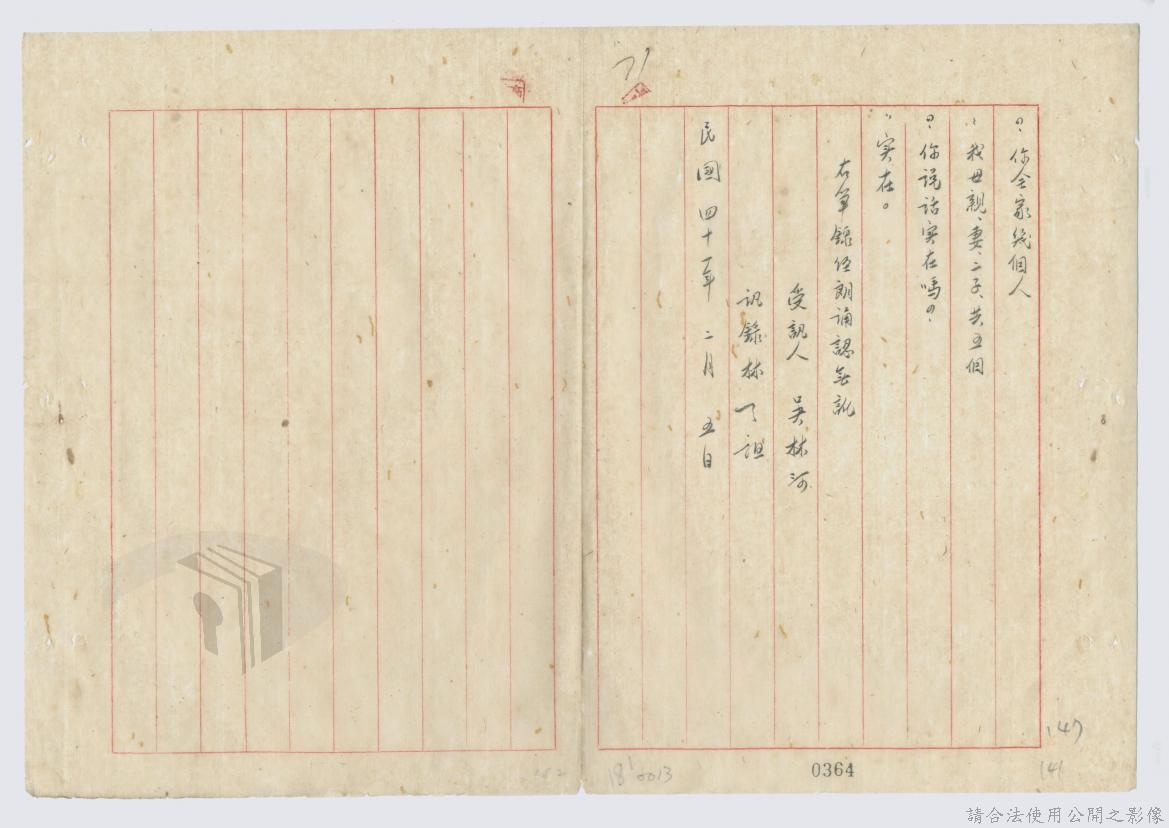 71
？你全家幾個人
：我母親、妻、二子、共五個
？你説話实在嗎？
：实在。
右筆錄經朗誦認無訛
受訊人 吳林河
訊錄林
民國四十一年 二月 五日
147
141
0364
18' 0013
請合法使用公開之影像